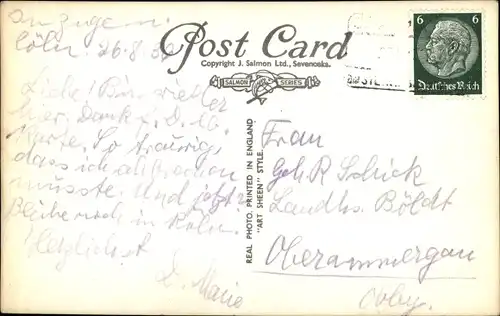 anzugen.
Köln. 26.8.
Post Card
Copyright J. Salmon Ltd., Sevenoaks.
SALMON SERIES
6 6
Deutsches Reich
Liebe! Bin wieder
hier. Dank f. D. lb.
Karte. So traurig,
dass ich
musste. Und jetzt?
Bleibe noch in Köln.
Herzlichst
D. Marie
REAL PHOTO. PRINTED IN ENGLAND
"ART SHEEN" STYLE.
Frau
Geh. R. Schick
Landhs. Böldt
Oberammergau
Obby.